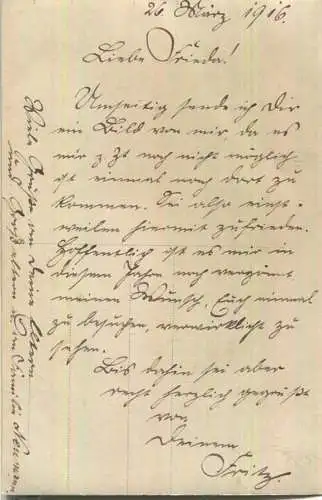 26. März 1916.
Liebe Frieda!
Umseitig sende ich Dir
ein Bild von mir, da es
mir z Zt noch nicht möglich
ist einmal nach dort zu
kommen. Sei also einst-
weilen hiermit zufrieden.
Hoffentlich ist es mir in
diesem Jahre noch vergönnt
meinen Wunsch, Euch einmal
zu besuchen, verwirklicht zu
sehen.
Bis dahin sei aber
recht herzlich gegrüßt
von
Deinem
Fritz.
Viele Grüße an Deine Eltern
und Großeltern u. Familie